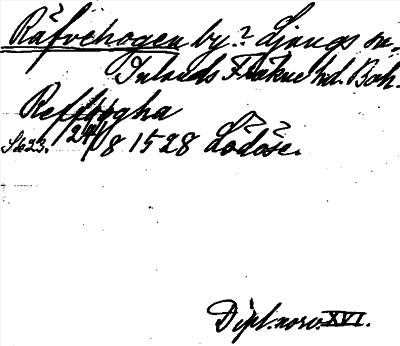 Räfvehogen by? Ljungs sn.
Inlands Fräkne hd. Boh.
Reffhogha
S623. 24/8 1528 Lödöse.
Dipl. norv. XVI.